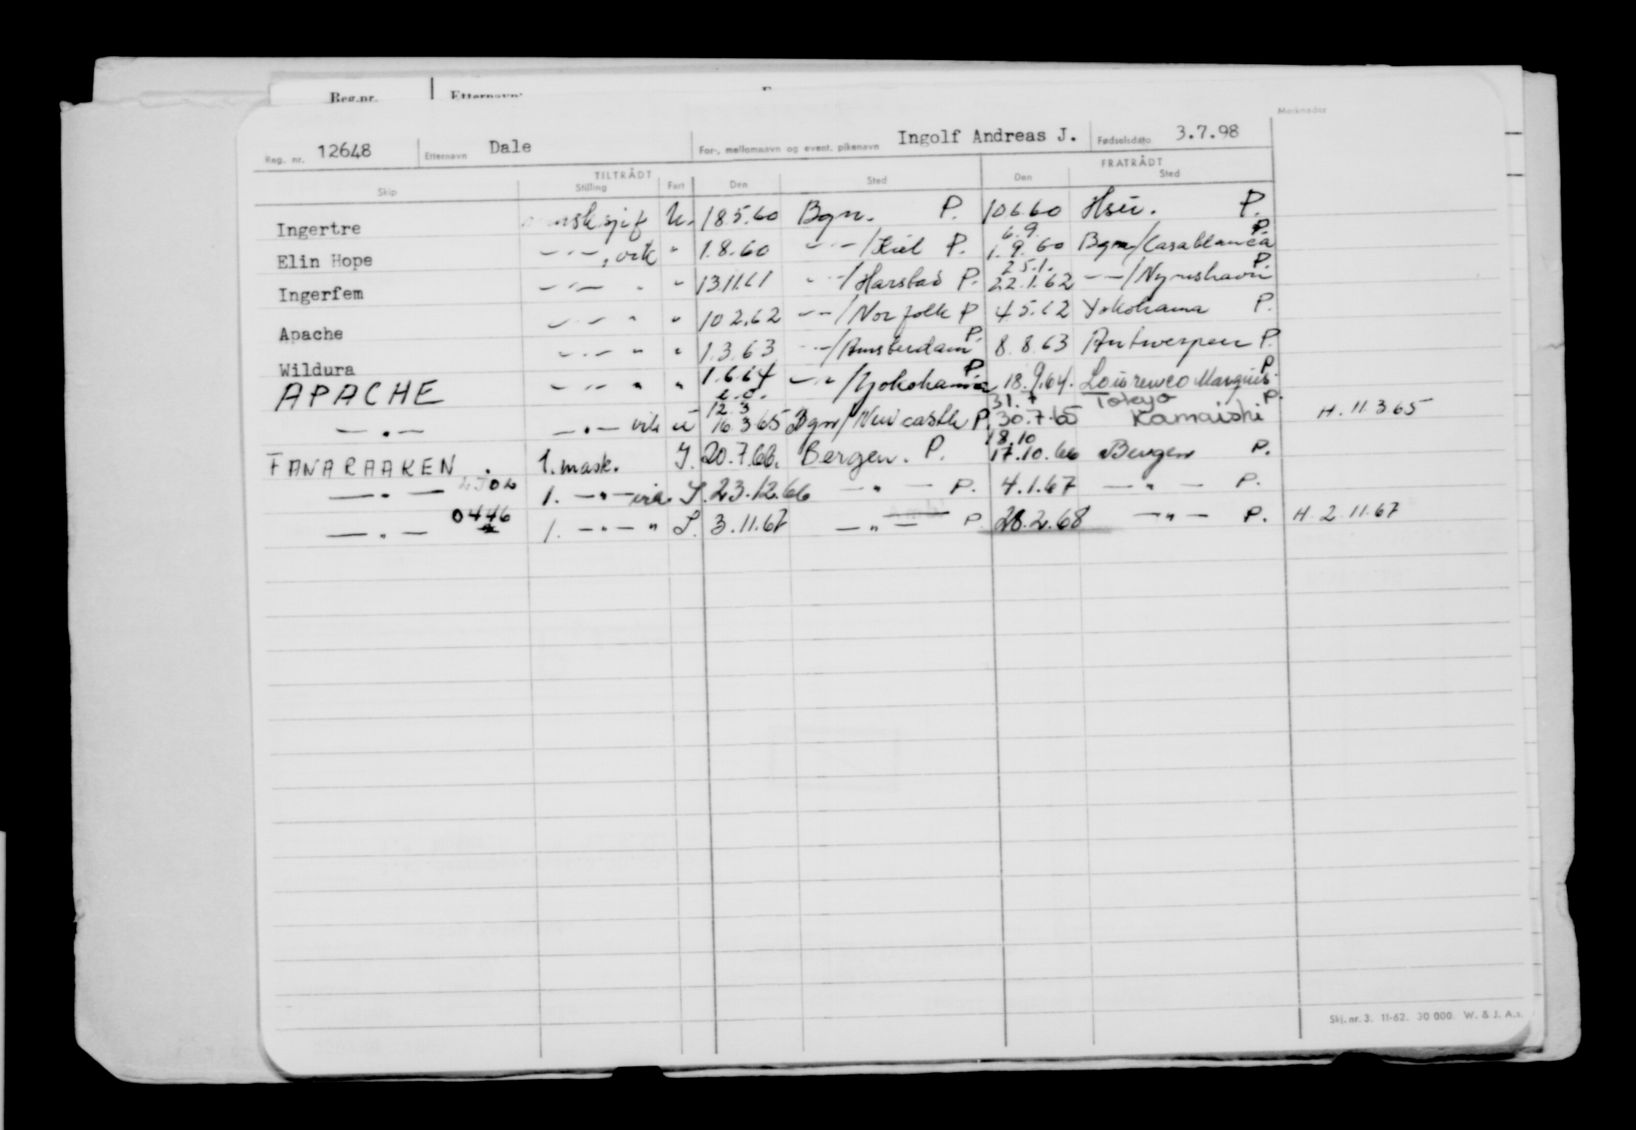 Reg.nr. Etternavn:
Merknader
Reg. nr. 12648 Etternavn Dale For-, mellomnavn og event. pikenavn Ingolf Andreas J. Fødselsdato 3.7.98
TILTRÅDT FRATRÅDT
Skip Stilling Fart Den Sted Den Sted
Ingertre U. 18.5.60 Bgn. P. 10.6.60 P.
6.9. P.
Elin Hope — " — , vik " 1.8.60 — " — / Kiel P. 1.9.60 Bgn/Casablanca
25.1. P.
Ingerfem — " — " " 13.11.61 — " — / Harstad P. 22.1.62 — " — /
Apache — " — " " 10.2.62 — " — / Norfolk P 4.5.62 Yokohama P.
Wildura — " — " " 1.3.63 — " — / Amsterdam P. 8.8.63 Antwerpen P.
APACHE — " — " " 1.6.64 — " — / Yokohama P. 18.9.64. Lourenco Marques P
12.3 31.7 Tokyo P.
— " — — " — vik u 16.3.65 Bgn/Newcastle P. 30.7.65 Kamaishi H. 11.3.65
18.10
FANARAAKEN . 1. mask. 20.7.66. Bergen. P. 17.10.66 Bergen P.
— " — 1. — " — 23.12.66 — " — P. 4.1.67 — " — P.
— " — 0446 1. — " — " 3.11.67 — " — P. 28.2.68 — " — P. H. 2.11.67
Skj. nr. 3. 11-62. 30 000. W. & J. A.s.